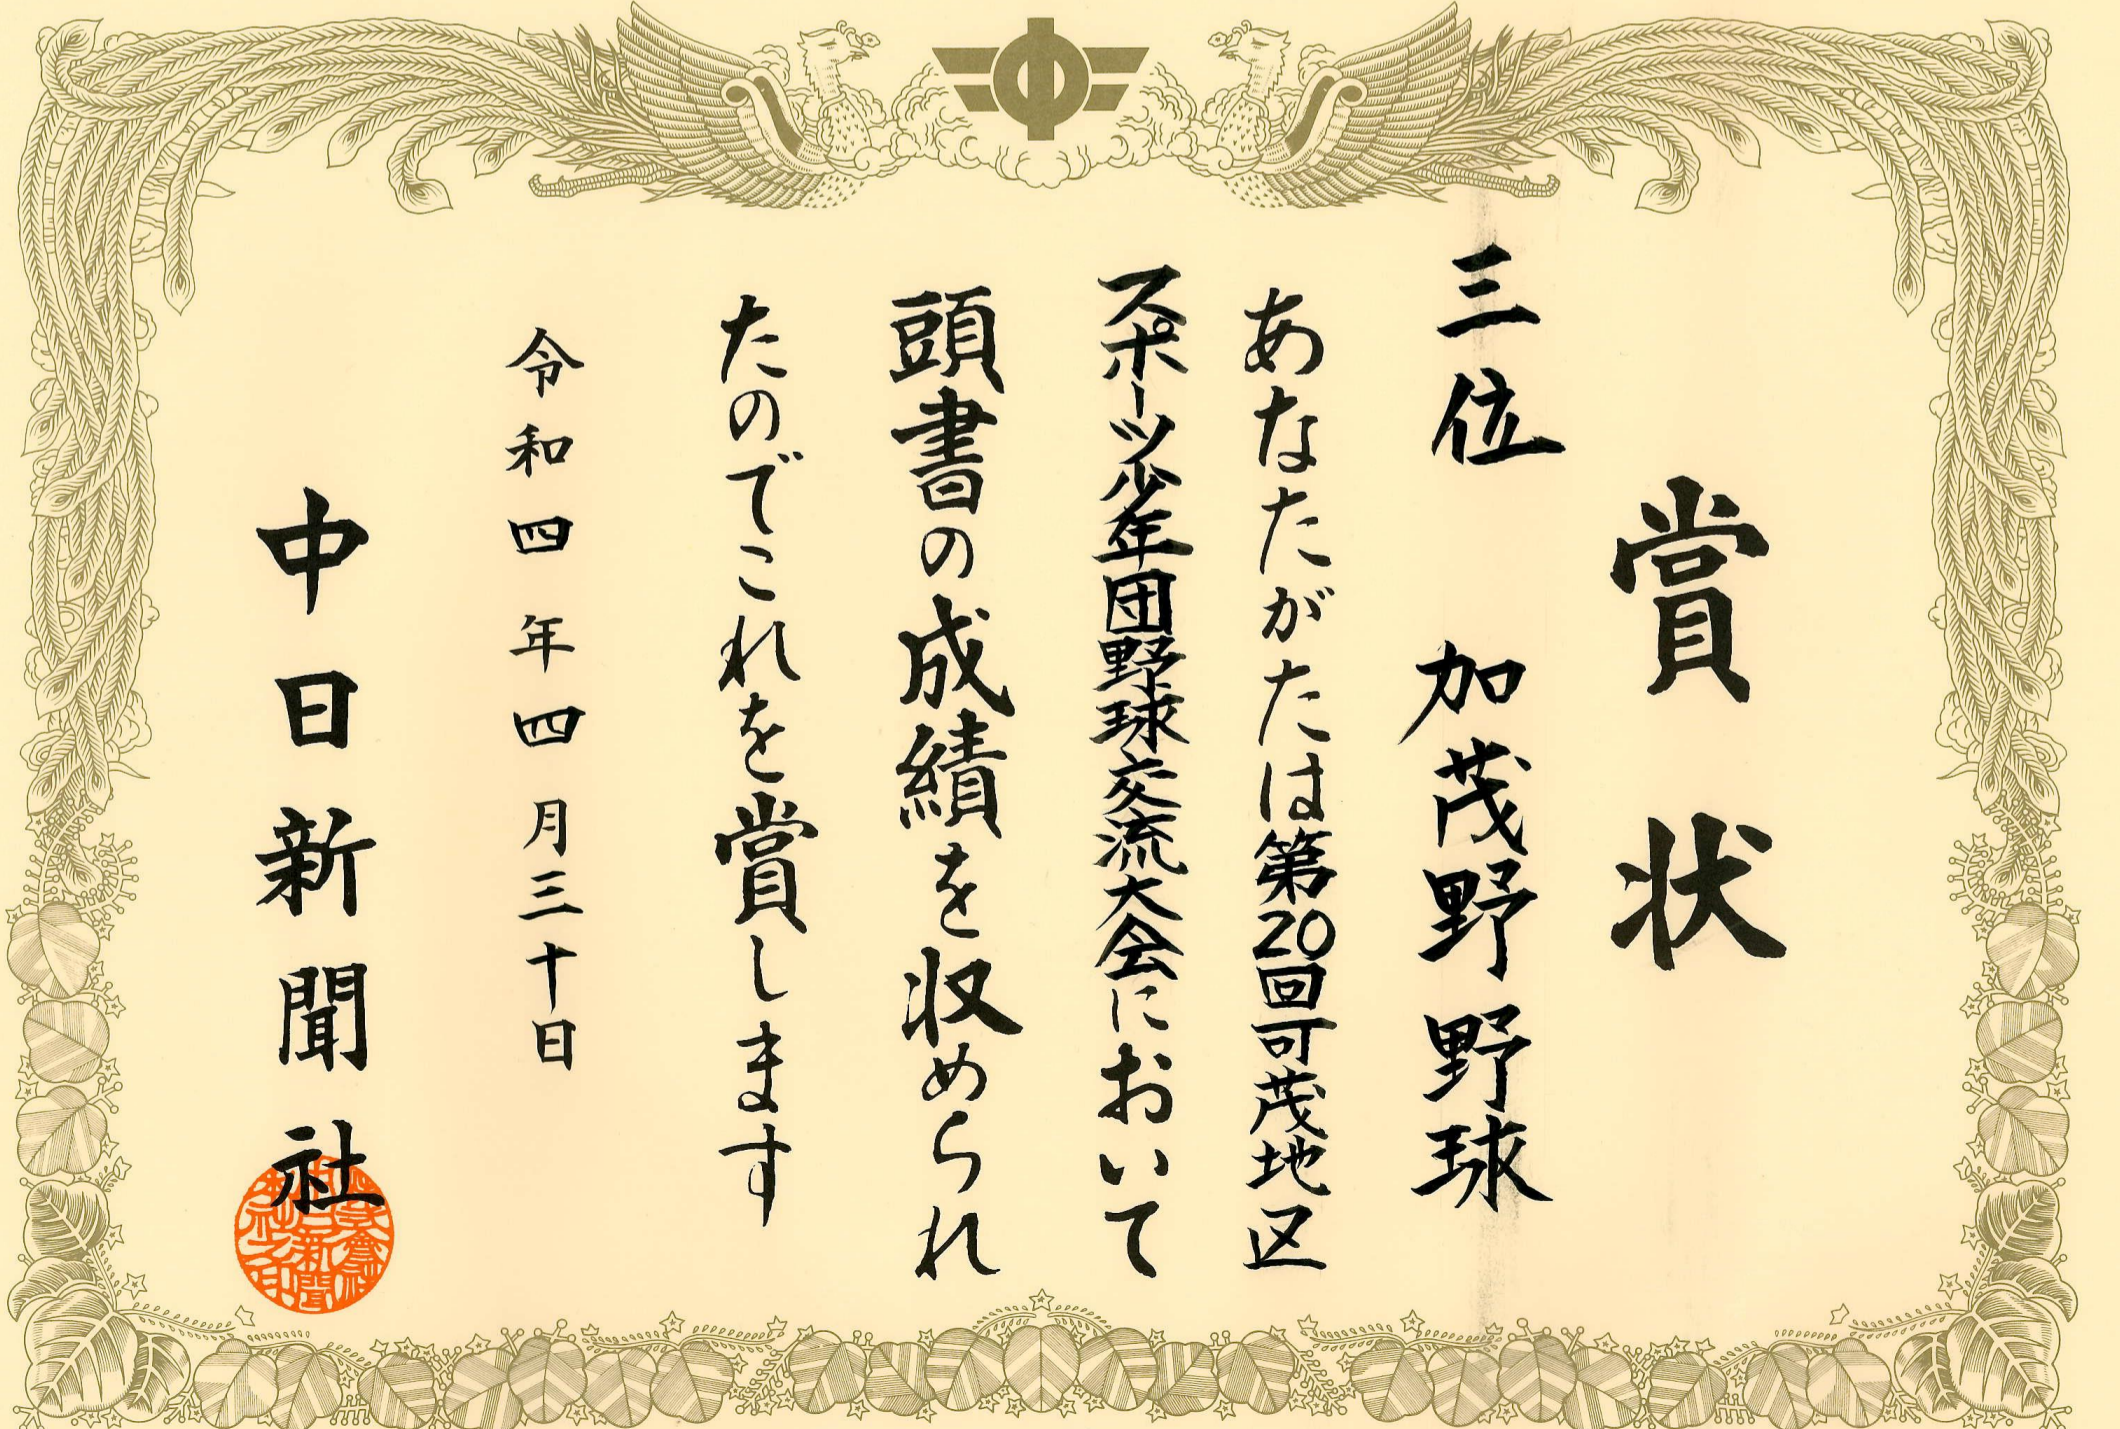 賞状
三位 加茂野野球
あなたがたは第20回可茂地区
スポーツ少年団野球交流大会において
頭書の成績を収められ
たのでこれを賞します
令和四年四月三十日
中日新聞社